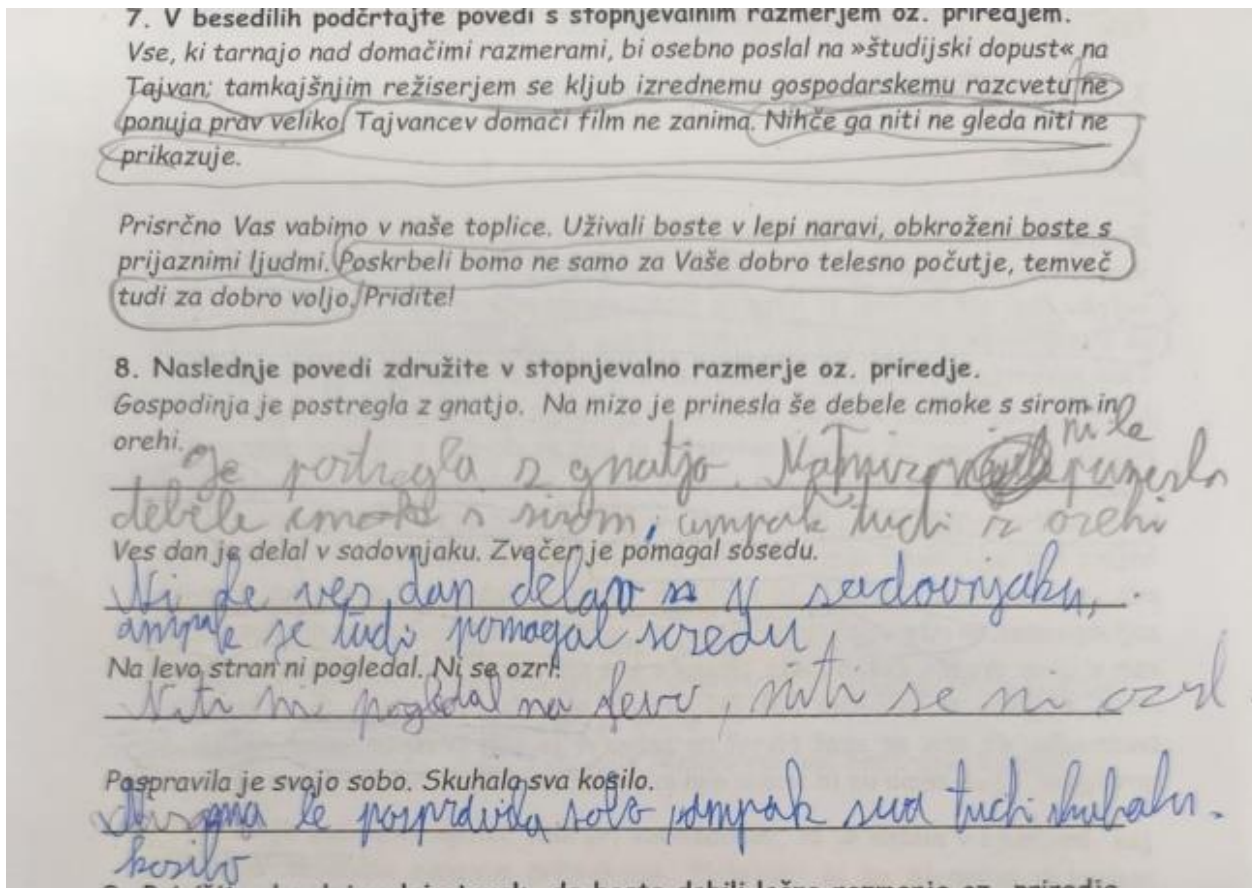 7. V besedilih podčrtajte povedi s stopnjevalnim razmerjem oz. priredjem.
Vse, ki tarnajo nad domačimi razmerami, bi osebno poslal na »študijski dopust« na
Tajvan; tamkajšnjim režiserjem se kljub izrednemu gospodarskemu razcvetu ne
ponuja prav veliko. Tajvancev domači film ne zanima. Nihče ga niti ne gleda niti ne
prikazuje.
Prisrčno Vas vabimo v naše toplice. Uživali boste v lepi naravi, obkroženi boste s
prijaznimi ljudmi. Poskrbeli bomo ne samo za Vaše dobro telesno počutje, temveč
tudi za dobro voljo. Pridite!
8. Naslednje povedi združite v stopnjevalno razmerje oz. priredje.
Gospodinja je postregla z gnatjo. Na mizo je prinesla še debele cmoke s sirom in
orehi.
Je postregla z gnatjo. Na mizo ni le prinesla
debele cmoke s sirom, ampak tudi z orehi
Ves dan je delal v sadovnjaku. Zvečer je pomagal sosedu.
Ni le ves dan delav v sadovnjaku,
ampak je tudi pomagal sosedu
Na levo stran ni pogledal. Ni se ozrl.
Niti ni pogledal na levo, niti se ni ozrl
Pospravila je svojo sobo. Skuhala sva kosilo.
le pospravila sobo, ampak sva tudi skuhala.
kosilo